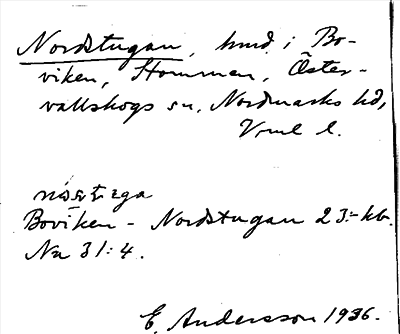 Nordstugan, hmd. i Bo-
viken, Hommen, Öster-
vallskogs sn, Nordmarks hd,
Vrml l.
Boviken - Nordstugan 23:- kb.
Na 31:4.
E. Andersson 1936.